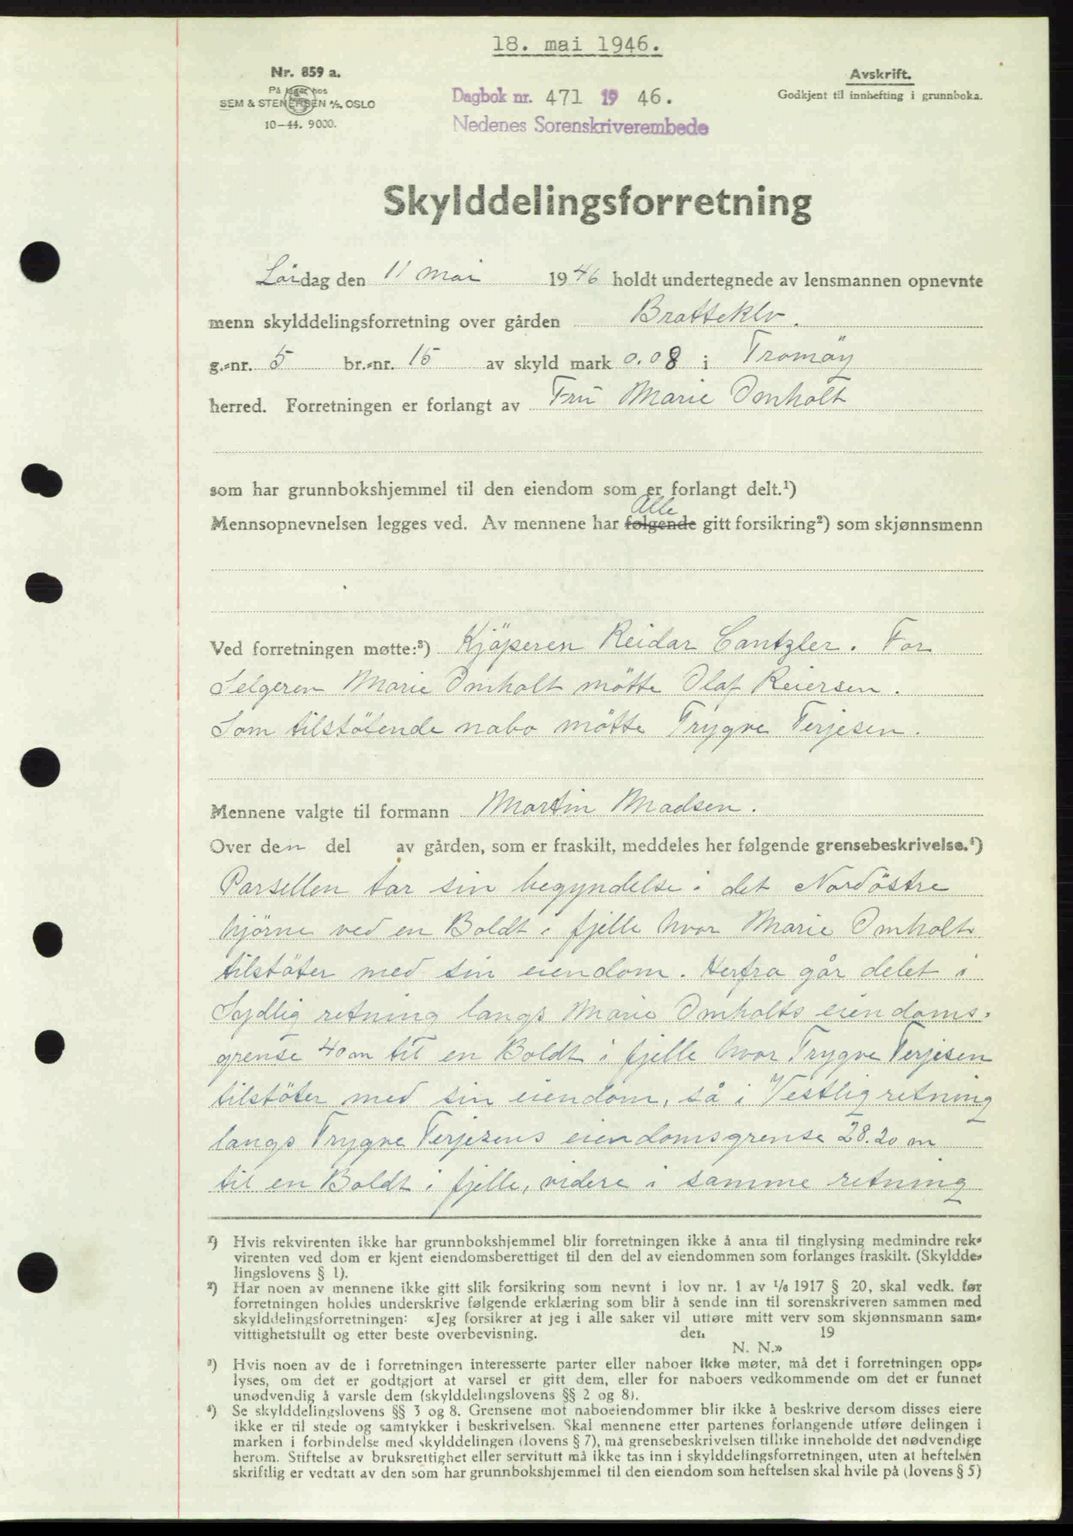 18. mai 1946.
Nr. 859 a.
På lager hos
SEM & STENERSEN A/S. OSLO
10-44. 9000.
Dagbok nr. 471 1946.
Nedenes Sorenskriverembede
Avskrift.
Godkjent til innhefting i grunnboka.
Skylddelingsforretning
Lördag den 11 mai 1946 holdt undertegnede av lensmannen opnevnte
menn skylddelingsforretning over gården Bratteklv.
g.-nr. 5 br.-nr. 15 av skyld mark 0.08 i Tromöy
herred. Forretningen er forlangt av Fru Marie Omholt
som har grunnbokshjemmel til den eiendom som er forlangt delt.¹)
Alle
Mennsopnevnelsen legges ved. Av mennene har følgende gitt forsikring²) som skjønnsmenn
Ved forretningen møtte:³) Kjöperen Reidar Cantzler. For
Selgeren Marie Omholt mötte Olaf Reiersen.
Som tilstötende nabo mötte Trygve Terjesen.
Mennene valgte til formann Martin Madsen.
Over den del av gården, som er fraskilt, meddeles her følgende grensebeskrivelse.⁴)
Parsellen tar sin begyndelse i det Nordöstre
hjörne ved en Boldt i fjelle hvor Marie Omholt
tilstöter med sin eiendom. Herfra går delet i
Sydlig retning langs Marie Omholts eiendoms-
grense 40 m til en Boldt i fjelle hvor Trygve Terjesen
tilstöter med sin eiendom, så i Vestlig retning
langs Trygve Terjesens eiendomsgrense 28.20 m
til en Boldt i fjelle, videre i samme retning
¹) Hvis rekvirenten ikke har grunnbokshjemmel blir forretningen ikke å anta til tinglysing medmindre rek-
virenten ved dom er kjent eiendomsberettiget til den del av eiendommen som forlanges fraskilt. (Skyldde-
lingslovens § 1).
²) Har noen av mennene ikke gitt slik forsikring som nevnt i lov nr. 1 av 1/6 1917 § 20, skal vedk. før
forretningen holdes underskrive følgende erklæring som blir å sende inn til sorenskriveren sammen med
skylddelingsforretningen: «Jeg forsikrer at jeg i alle saker vil utføre mitt verv som skjønnsmann sam-
vittighetsfullt og etter beste overbevisning. den 19
N. N.»
³) Hvis noen av de i forretningen interesserte parter eller naboer ikke møter, må det i forretningen opp-
lyses, om det er godtgjort at varsel er gitt dem, eller for naboers vedkommende om det er funnet
unødvendig å varsle dem (skylddelingslovens §§ 2 og 8).
⁴) Se skylddelingslovens §§ 3 og 8. Grensene mot naboeiendommer blir ikke å beskrive dersom disses eiere
ikke er til stede og samtykker i beskrivelsen. Skal mennene etter partenes forlangende utføre delingen i
marken i forbindelse med skylddelingen (lovens § 7), må grensebeskrivelsen tillike inneholde det nødvendige
herom. Stiftelse av bruksrettighet eller servitutt må ikke tas inn i skylddelingsforretningen, uten at heftelsen
skriftlig er vedtatt av den som har grunnbokshjemmel til den eiendom som heftelsen skal hvile på (lovens § 5)